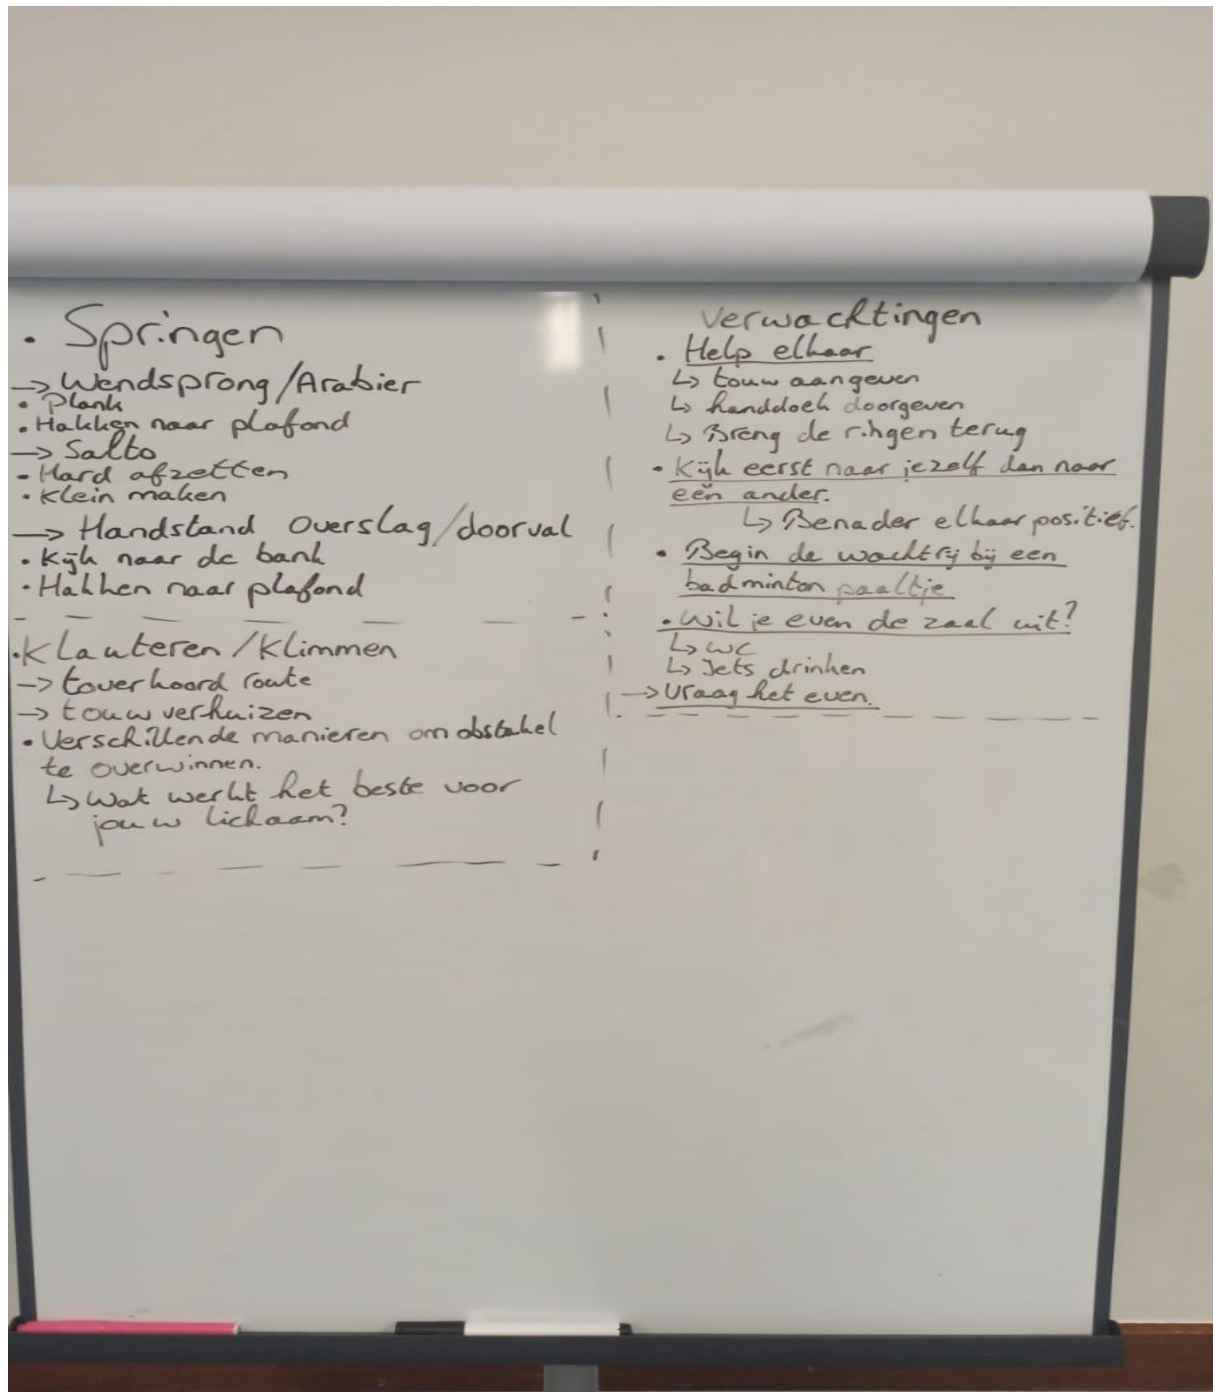 • Springen
-> Wendsprong/Arabier
• Plank
• Hakken naar plafond
-> Salto
• Hard afzetten
• Klein maken
-> Handstand Overslag/doorval
• Kijk naar de bank
• Hakken naar plafond
• Klauteren/Klimmen
-> toverkoord route
-> touw verhuizen
• Verschillende manieren om obstakel
te overwinnen.
↳ Wat werkt het beste voor
jouw lichaam?
Verwachtingen
• Help elkaar
↳ touw aangeven
↳ handdoek doorgeven
↳ Breng de ringen terug
• Kijk eerst naar jezelf dan naar
een ander.
↳ Benader elkaar positief.
• Begin de wachtrij bij een
badminton paaltje
• Wil je even de zaal uit?
↳ WC
↳ Iets drinken
-> Vraag het even.